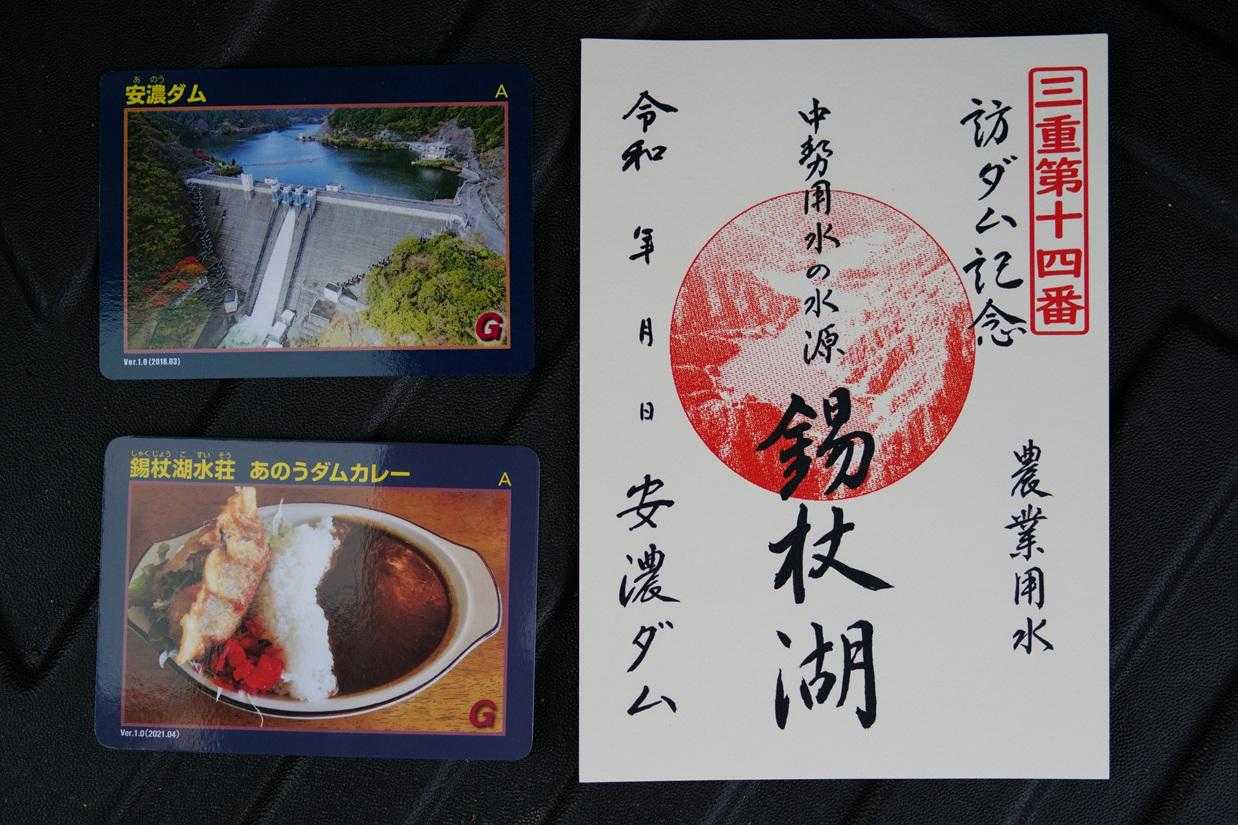 あのう
安濃ダム
A
G
Ver.1.0(2018.03)
しゃくじょうこすいそう
錫杖湖水荘 あのうダムカレー
A
G
Ver.1.0(2021.04)
三重第十四番
訪ダム記念
農業用水
中勢用水の水源
錫杖湖
令和 年 月 日
安濃ダム